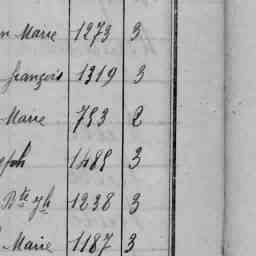 Marie 1273 3
françois 1319 3
Marie 753 2
ph 1485 3
Bte jh 1238 3
Marie 1187 3